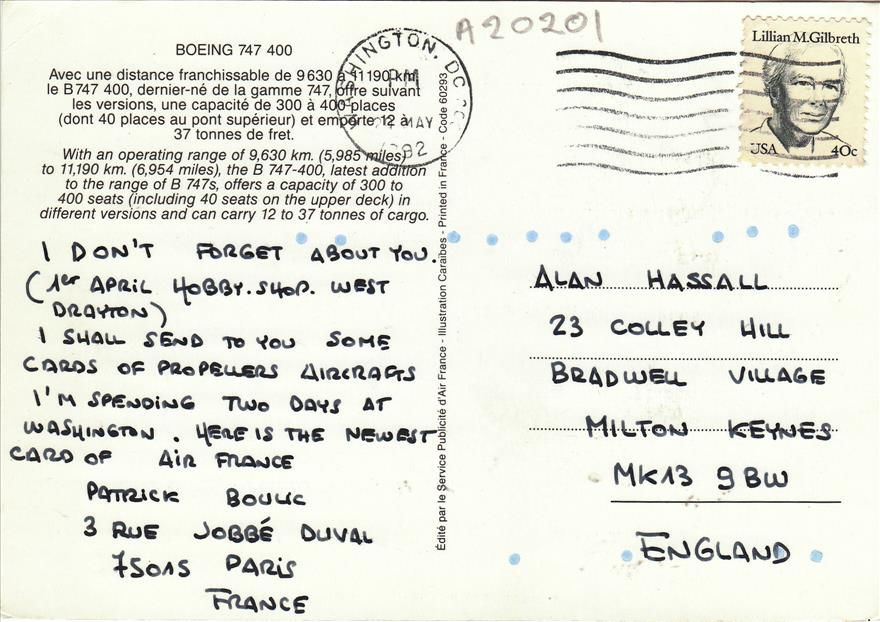 A20201
BOEING 747 400
Avec une distance franchissable de 9630 à 11190 km,
le B747 400, dernier-né de la gamme 747, offre suivant
les versions, une capacité de 300 à 400 places
(dont 40 places au pont supérieur) et emporte 12 à
37 tonnes de fret.
With an operating range of 9,630 km. (5,985 miles)
to 11,190 km. (6,954 miles), the B 747-400, latest addition
to the range of B 747s, offers a capacity of 300 to
400 seats (including 40 seats on the upper deck) in
different versions and can carry 12 to 37 tonnes of cargo.
WASHINGTON, DC
PM
MAY
1992
Lillian M.Gilbreth
USA 40c
I DON'T FORGET ABOUT YOU.
(1er APRIL HOBBY.SHOP. WEST
DRAYTON)
I SHALL SEND TO YOU SOME
CARDS OF PROPELLERS AIRCRAFTS
I'M SPENDING TWO DAYS AT
WASHINGTON. HERE IS THE NEWEST
CARD OF AIR FRANCE
PATRICK
3 RUE JOBBÉ DUVAL
75015 PARIS
FRANCE
Édité par le Service Publicité d'Air France - Illustration Caraïbes - Printed in France - Code 60293
ALAN HASSALL
23 COLLEY HILL
BRADWELL VILLAGE
MILTON KEYNES
MK13 9BW
ENGLAND